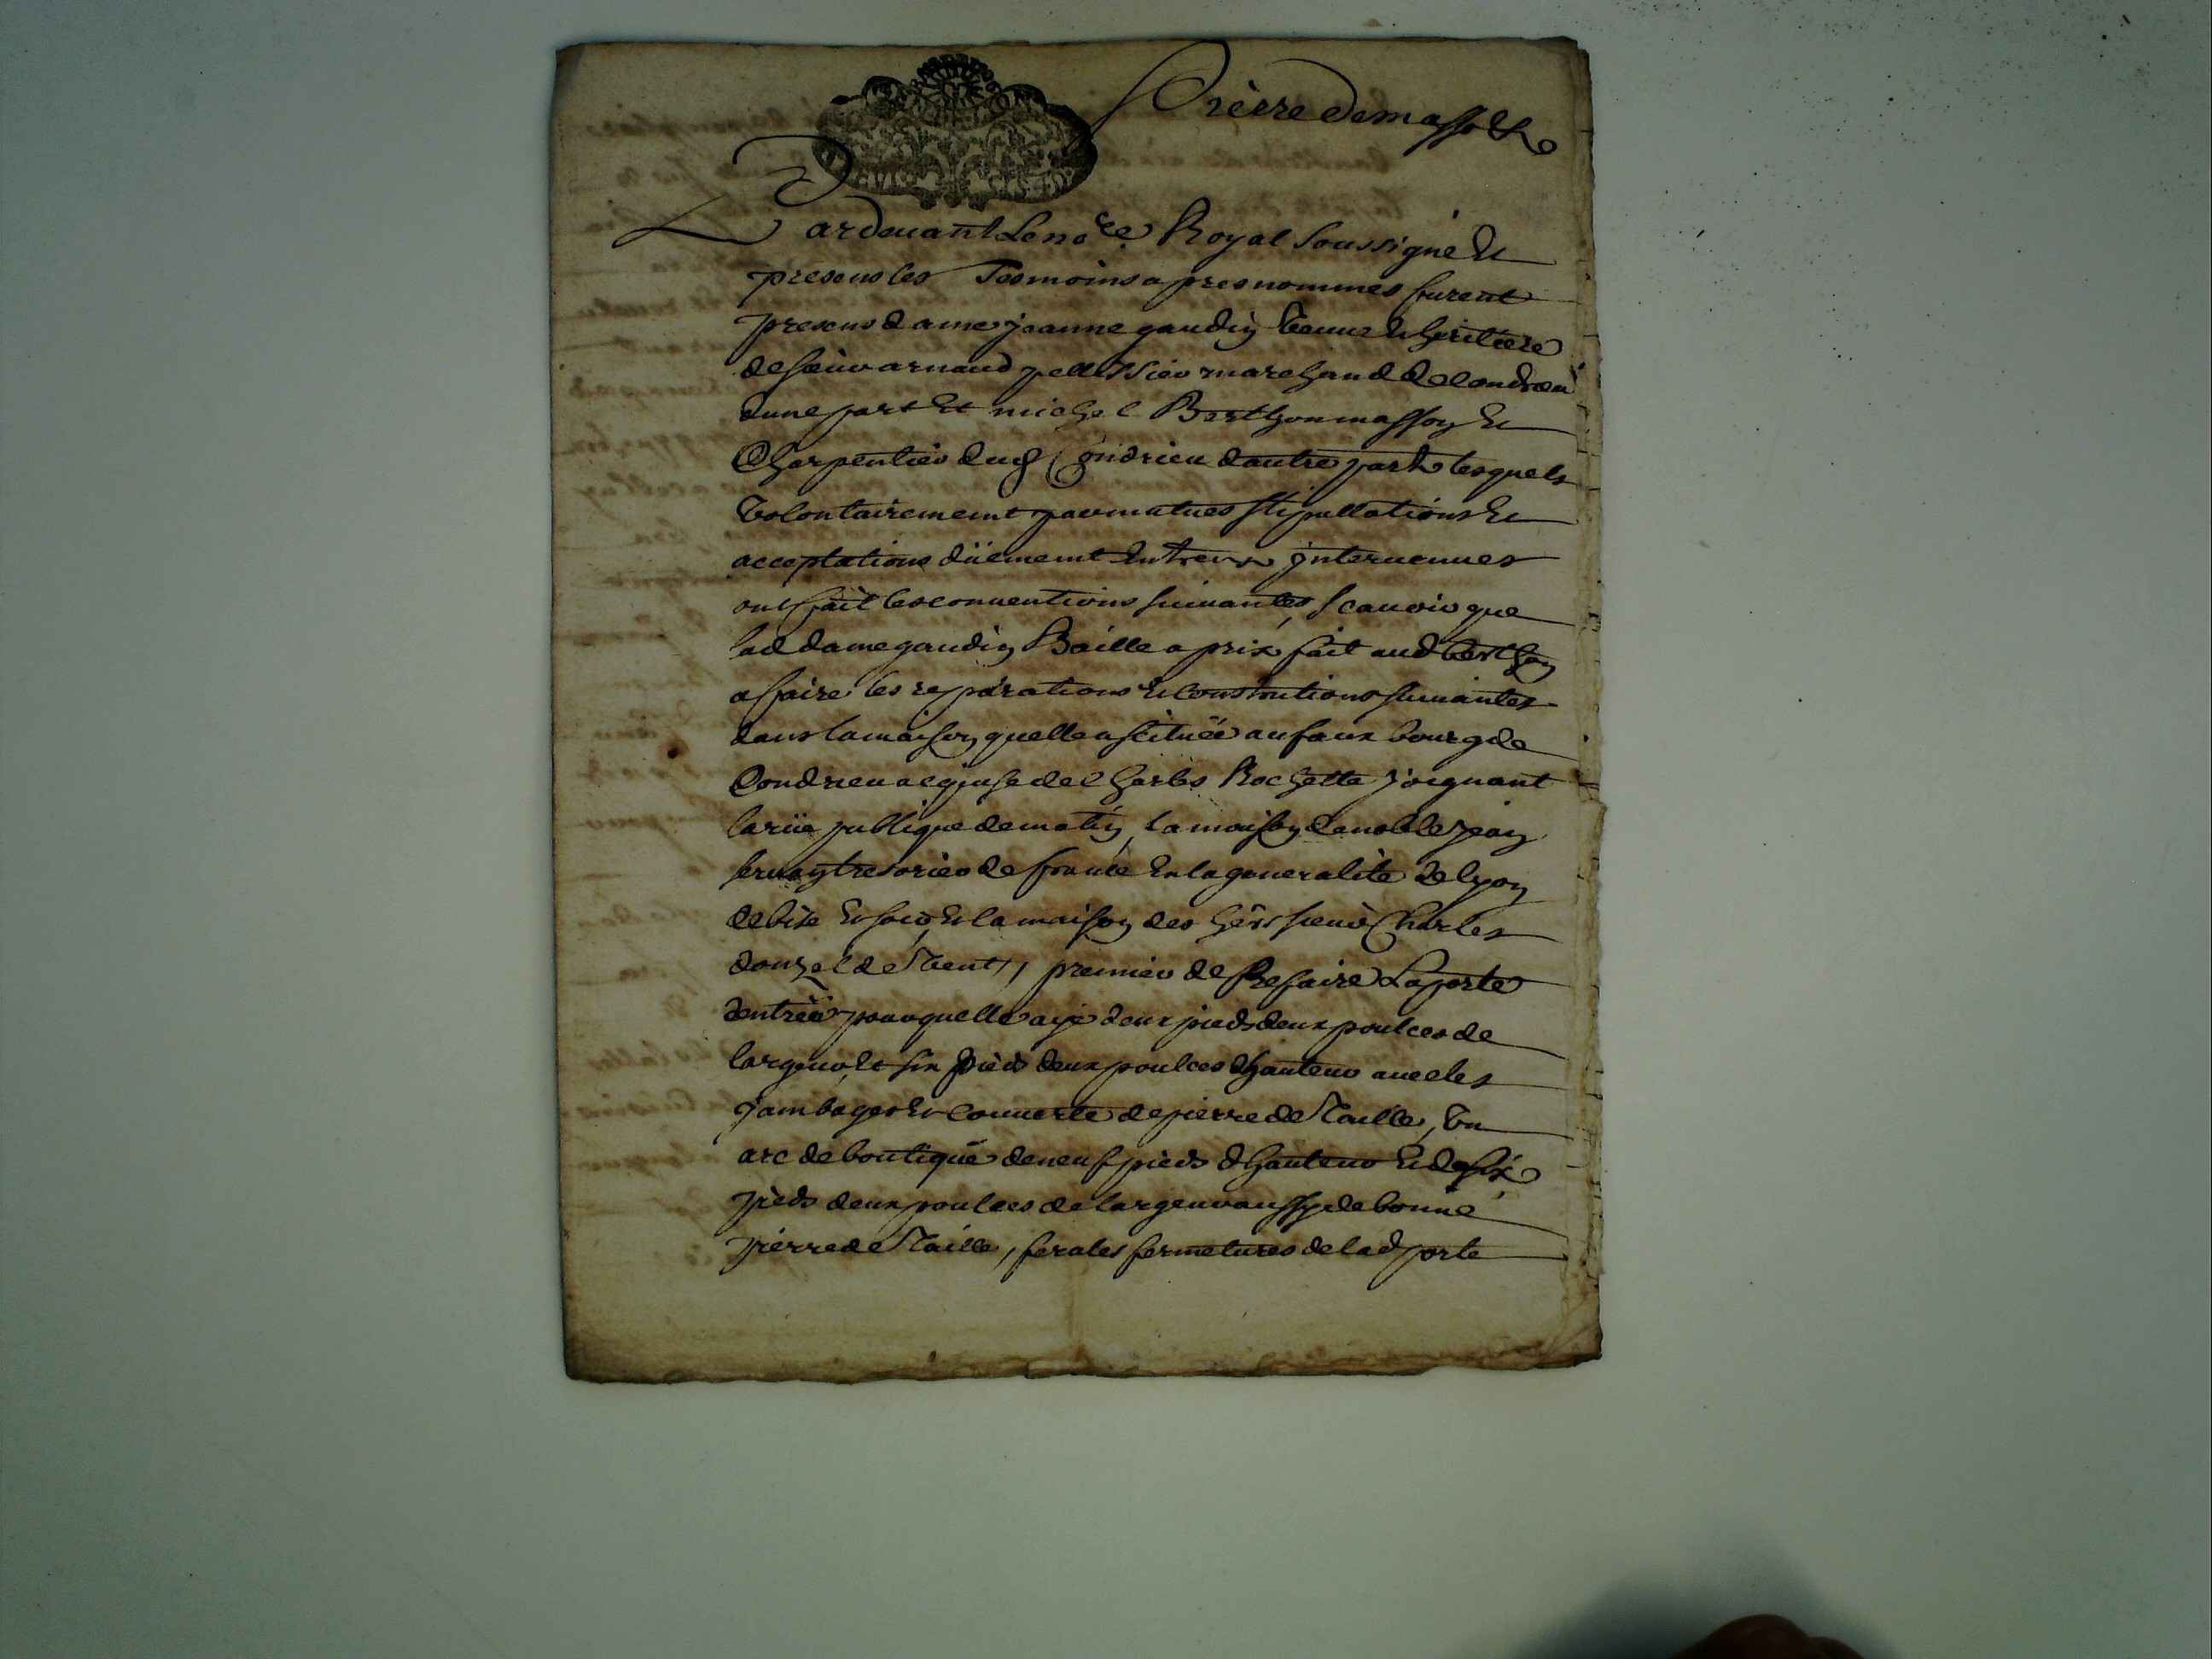 Pardeuant Le no.re Royal Soussigné Et
presens les Tesmoins apres nommes furent
presens dame jeanne gaudin veuue Et heritiere
de sieur arnaud pellissier marchand de Condrieu
dune part Et michel Berthon masson Et
Charpentier dud Condrieu dautre part lesquels
volontairement par mutues stipullations Et
acceptations düement Entreux jnteruenues
ont fait les conuentions suiuantes, scauoir que
lad dame gaudin Baille a prix fait aud berthon
a faire les reparations Et Constructions suiuantes
dans la maison quelle a scituée au faux bourg de
Condrieu acquise de Charles Rochette joignant
la rüe publique de matin, la maison de noble jean
tresorier de france En la generalité de lyon
de bise Et soir, Et la maison des hers sieur Charles
donzel de vent, premier de Refaire La porte
dentrée pour quelle aye deux pieds deux poulces de
largeur, Et six pieds deux poulces dhauteur auec les
jambages Et Couuerte de pierre de Taille, vn
arc de boutique de neuf pieds dhauteur Et de six
pieds deux poulces de largeur aussy de bonne
pierre de Taille, fera les fermetures de lad porte